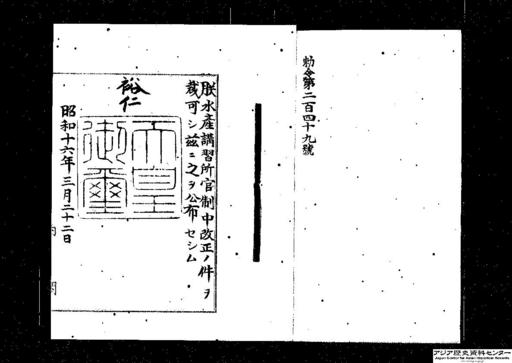 勅令第二百四十九號
朕水産講習所官制中改正ノ件ヲ
裁可シ茲ニ之ヲ公布セシム
裕仁
天皇
御璽
昭和十六年三月二十二日
内
アジア歴史資料センター
Japan Center for Asian Historical Records